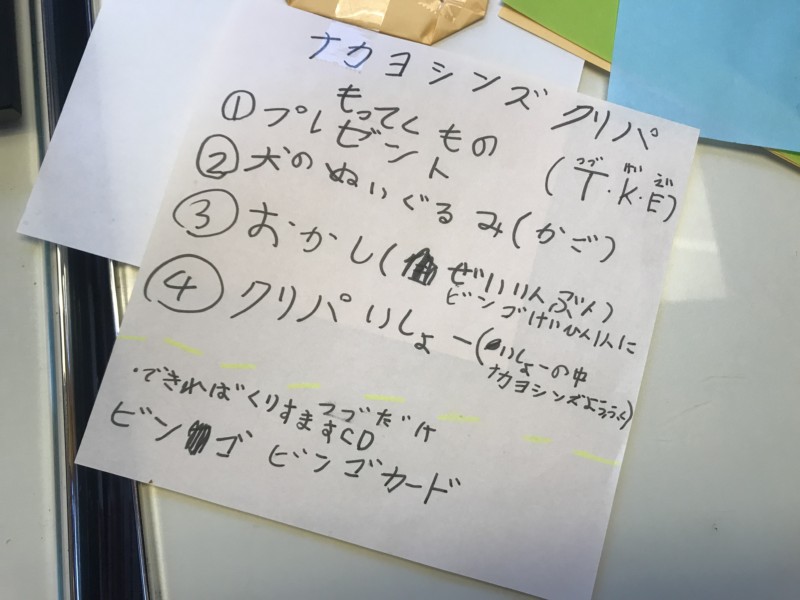 ナカヨシンズ クリパ
もってくもの
① プレゼント (T.K.E)
② 犬のぬいぐるみ(かご)
③ おかし(ぜいいんぶん)
ビンゴけいひん1人に
④ クリパいしょー(いしょーの中
ナカヨシンズようふく)
・できればくりすますCD
つづだけ
ビンゴ ビンゴカード